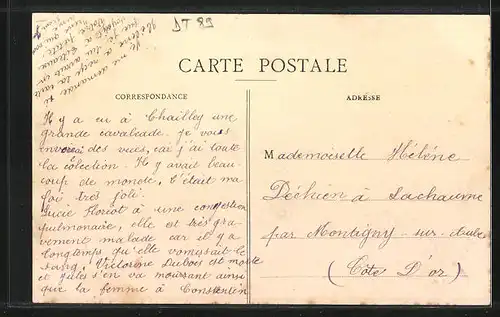 DT 89
CARTE POSTALE
CORRESPONDANCE
ADRESSE
Il y a eu à Chailley une
grande cavalcade. Je vous
enverrai des vues, car j'ai toute
la colection. Il y avait beau-
coup de monde, c'était ma
foi très joli.
Lucie Floriot à une congestion
pulmonaire, elle est très gra-
vement malade car il y a
longtemps qu'elle vomissait le
sang, Victorine Dubois est morte
et Jules s'en va mourant ainsi
que la femme à Constantin
Mademoiselle Hélène
à Lachaume
par Montigny-sur-Aube
(Côte D'or)